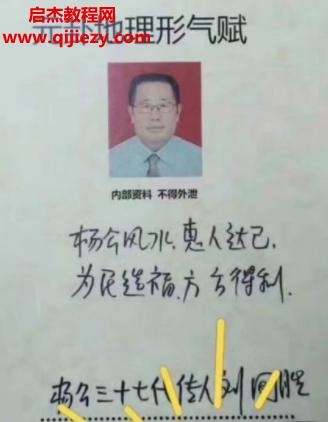 启杰教程网
www.qijiezy.com
地理形气赋
内部资料 不得外泄
杨公风水,惠人达己,
为民造福,方得利.
杨公三十七代传人刘国胜